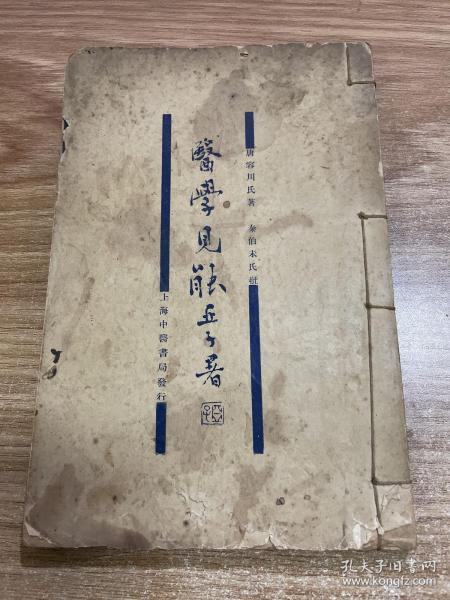 唐容川氏著 秦伯未氏批
醫學見能 丘子署
上海中醫書局發行
孔夫子旧书网
www.kongfz.com